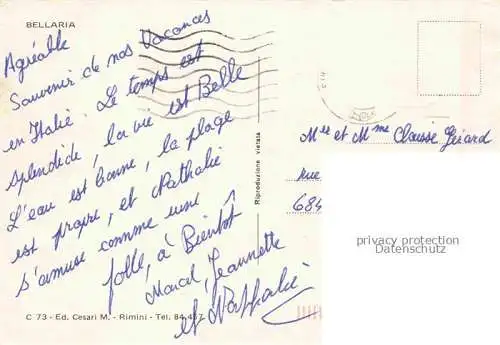 BELLARIA
Agréable
Souvenir de nos Vacances
en Italie. Le temps est
splendide, la vie est Belle
L'eau est bonne, la plage
est propre, et Nathalie
s'amuse comme une
folle, à Bientôt
Marcel, Jeannette
et Nathalie
C 73 - Ed. Cesari M. - Rimini - Tel. 84.457
Riproduzione vietata
Mr et Mme Clausse Gérard
Rue
684
privacy protection
Datenschutz